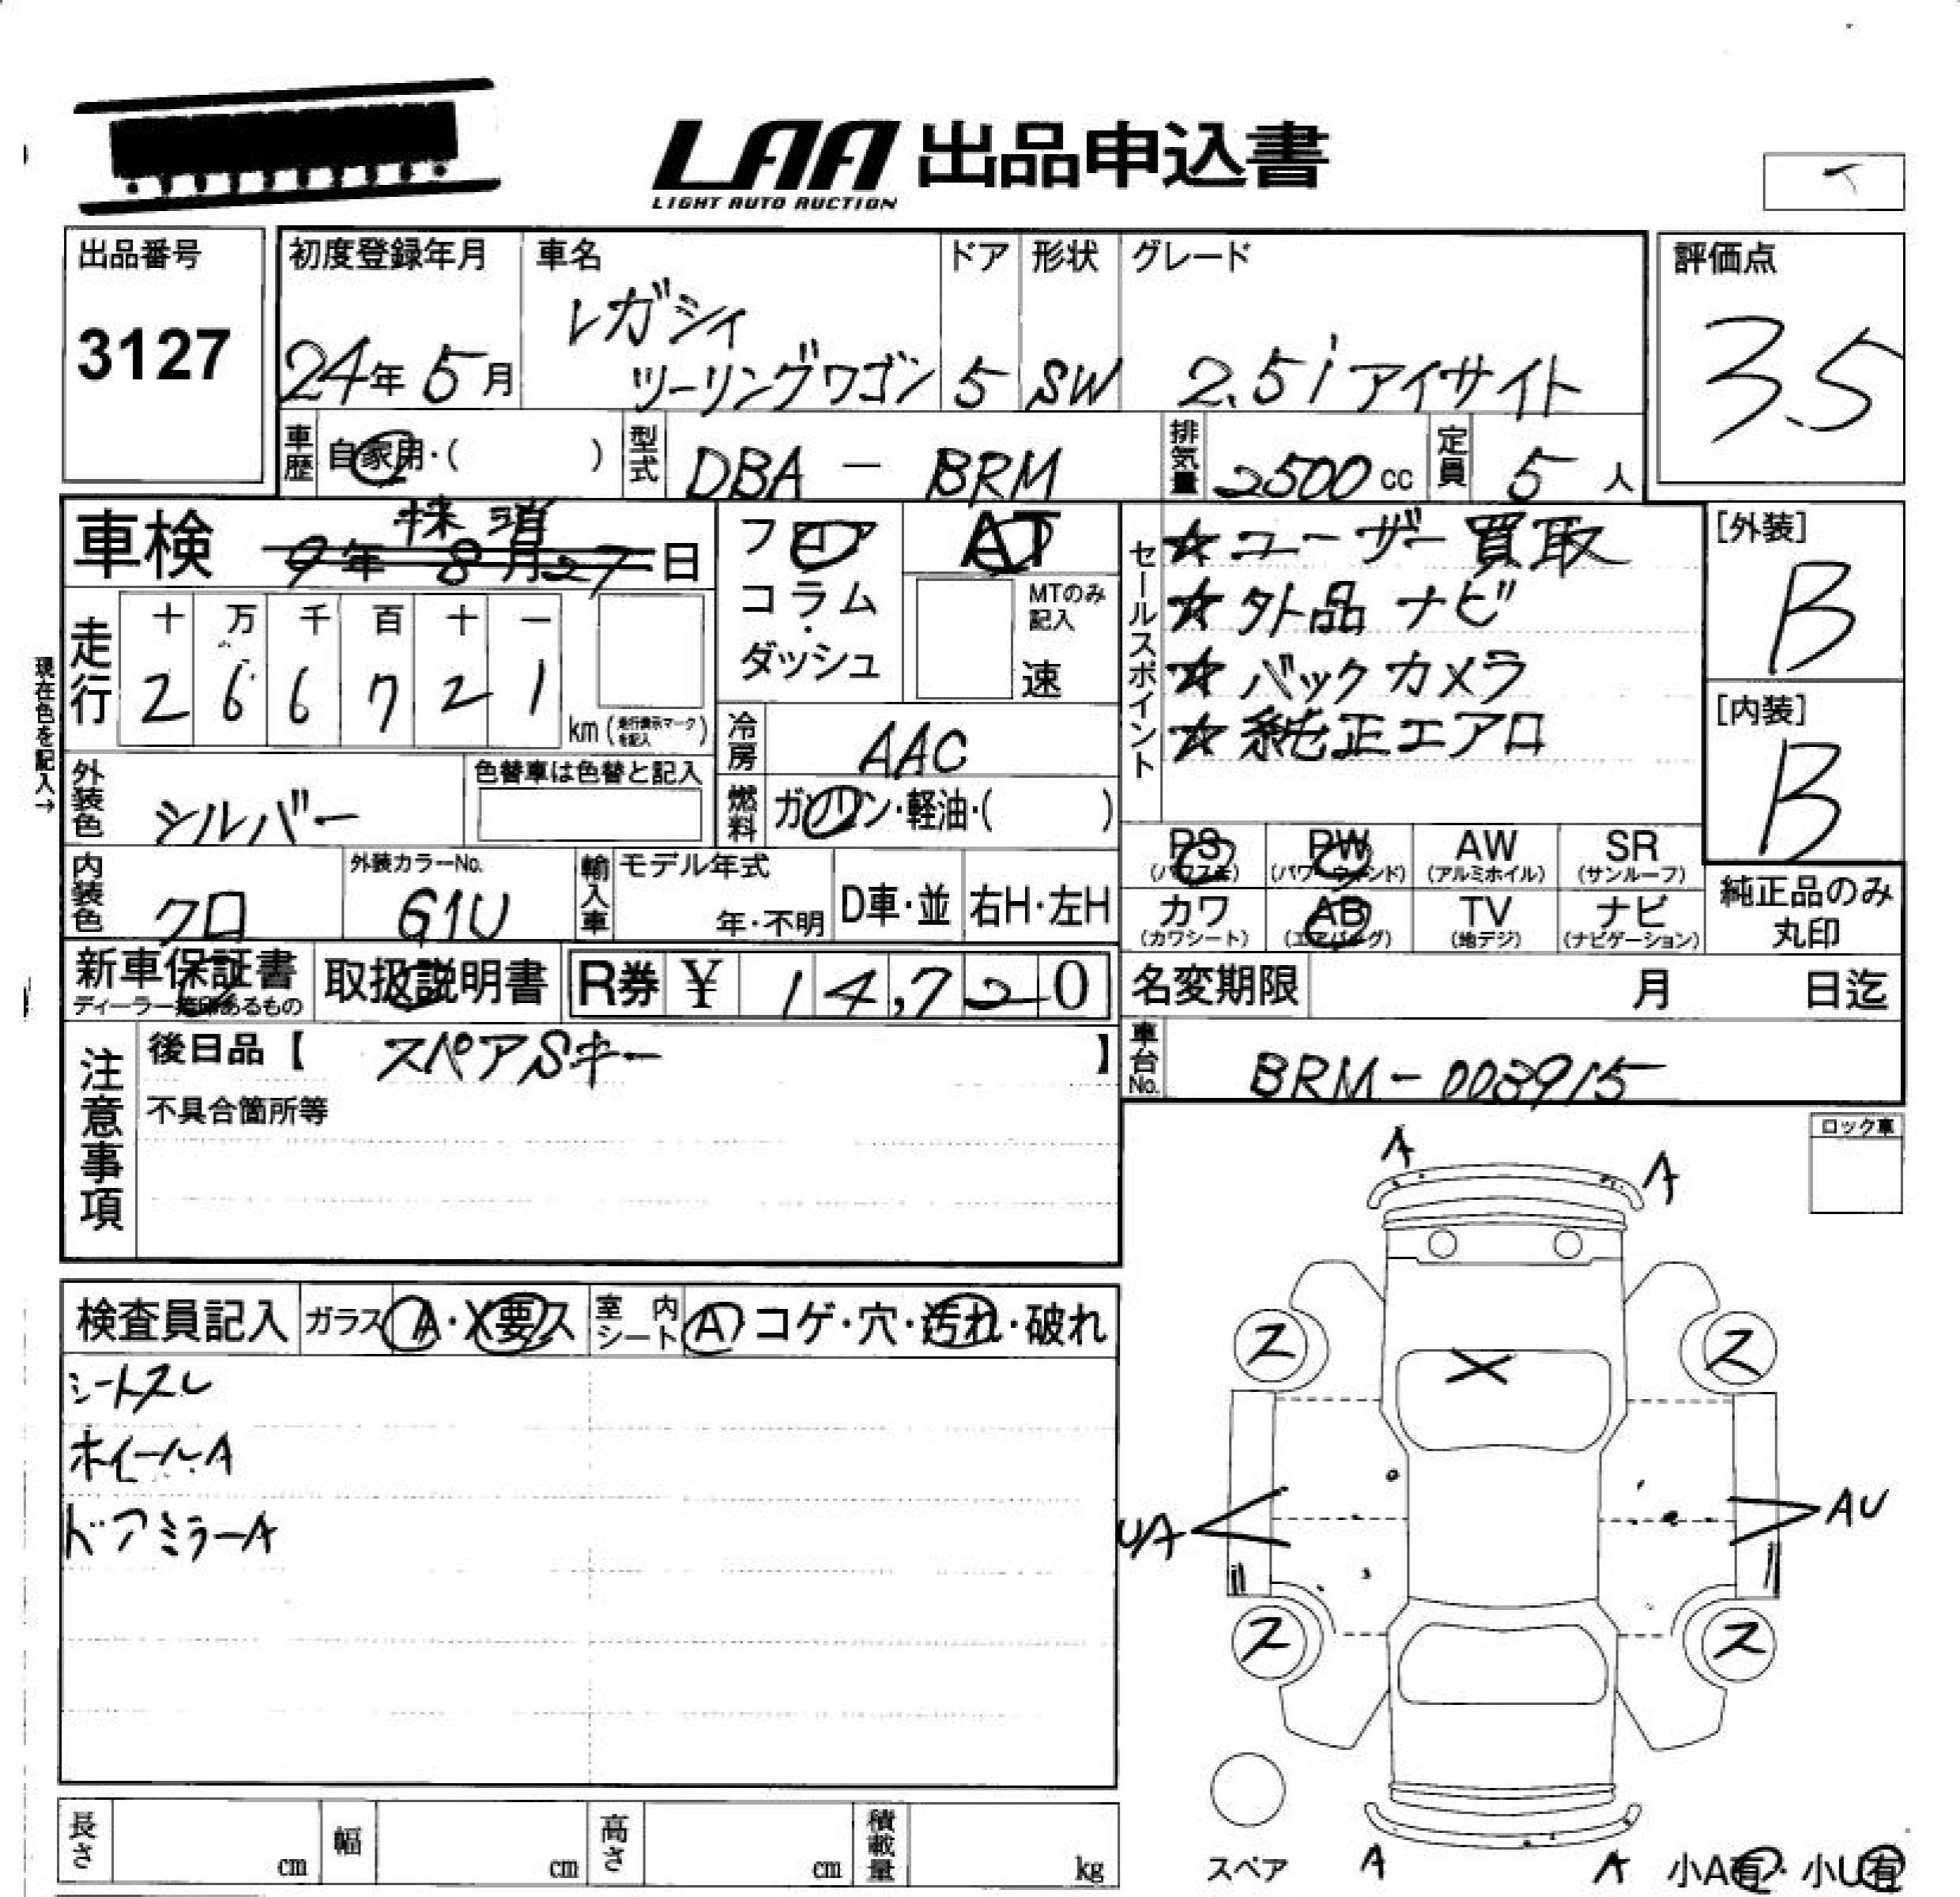 LAA 出品申込書
LIGHT AUTO AUCTION
出品番号
3127
初度登録年月
24年 5月
車名
レガシィ
ツーリングワゴン
ドア
5
形状
SW
グレード
2.5i アイサイト
評価点
3.5
車歴
自家用・( )
型式
DBA - BRM
排気量
2500 cc
定員
5 人
車検
抹消
9年 8月 27日
フロア
コラム・
ダッシュ
AT
MTのみ
記入
速
セールスポイント
☆ユーザー買取
☆外品ナビ
☆バックカメラ
☆純正エアロ
[外装]
B
[内装]
B
現在色を記入→
走行
十 万 千 百 十 一
2 6 6 7 2 1
km (走行表示マークを記入)
冷房
AAC
燃料
ガソリン・軽油・( )
外装色
シルバー
色替車は色替と記入
内装色
クロ
外装カラーNo.
G1U
輸入車
モデル年式
年・不明
D車・並
右H・左H
PS
(パワステ)
PW
(パワーウィンド)
AW
(アルミホイル)
SR
(サンルーフ)
カワ
(カワシート)
AB
(エアバッグ)
TV
(地デジ)
ナビ
(ナビゲーション)
純正品のみ
丸印
新車保証書
ディーラー捺印あるもの
取扱説明書
R券 ¥ 14,720
名変期限 月 日迄
車台No.
BRM-003915
注意事項
後日品【 スペアSキー 】
不具合箇所等
ロック車
検査員記入
ガラス A・X要ス
室内シート A コゲ・穴・汚れ・破れ
シートスレ
ホイールA
ドアミラーA
A
A
ス
ス
X
UA
AU
ス
ス
スペア
A
A
小A有・小U有
長さ cm
幅 cm
高さ cm
積載量 kg